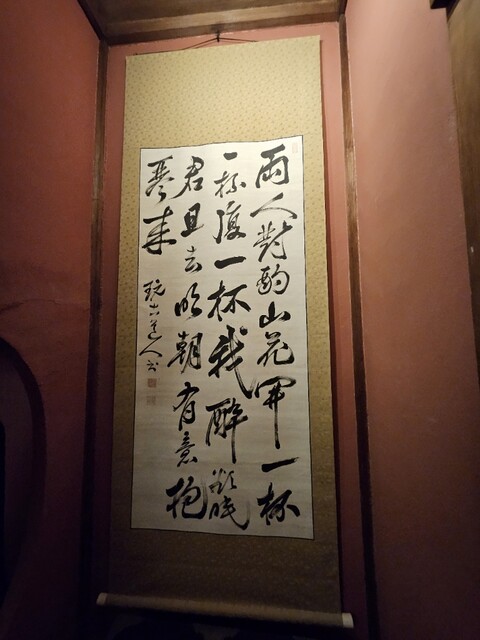 兩人對酌山花開一杯
一杯復一杯我醉欲眠
君且去明朝有意抱
琴来
道人書